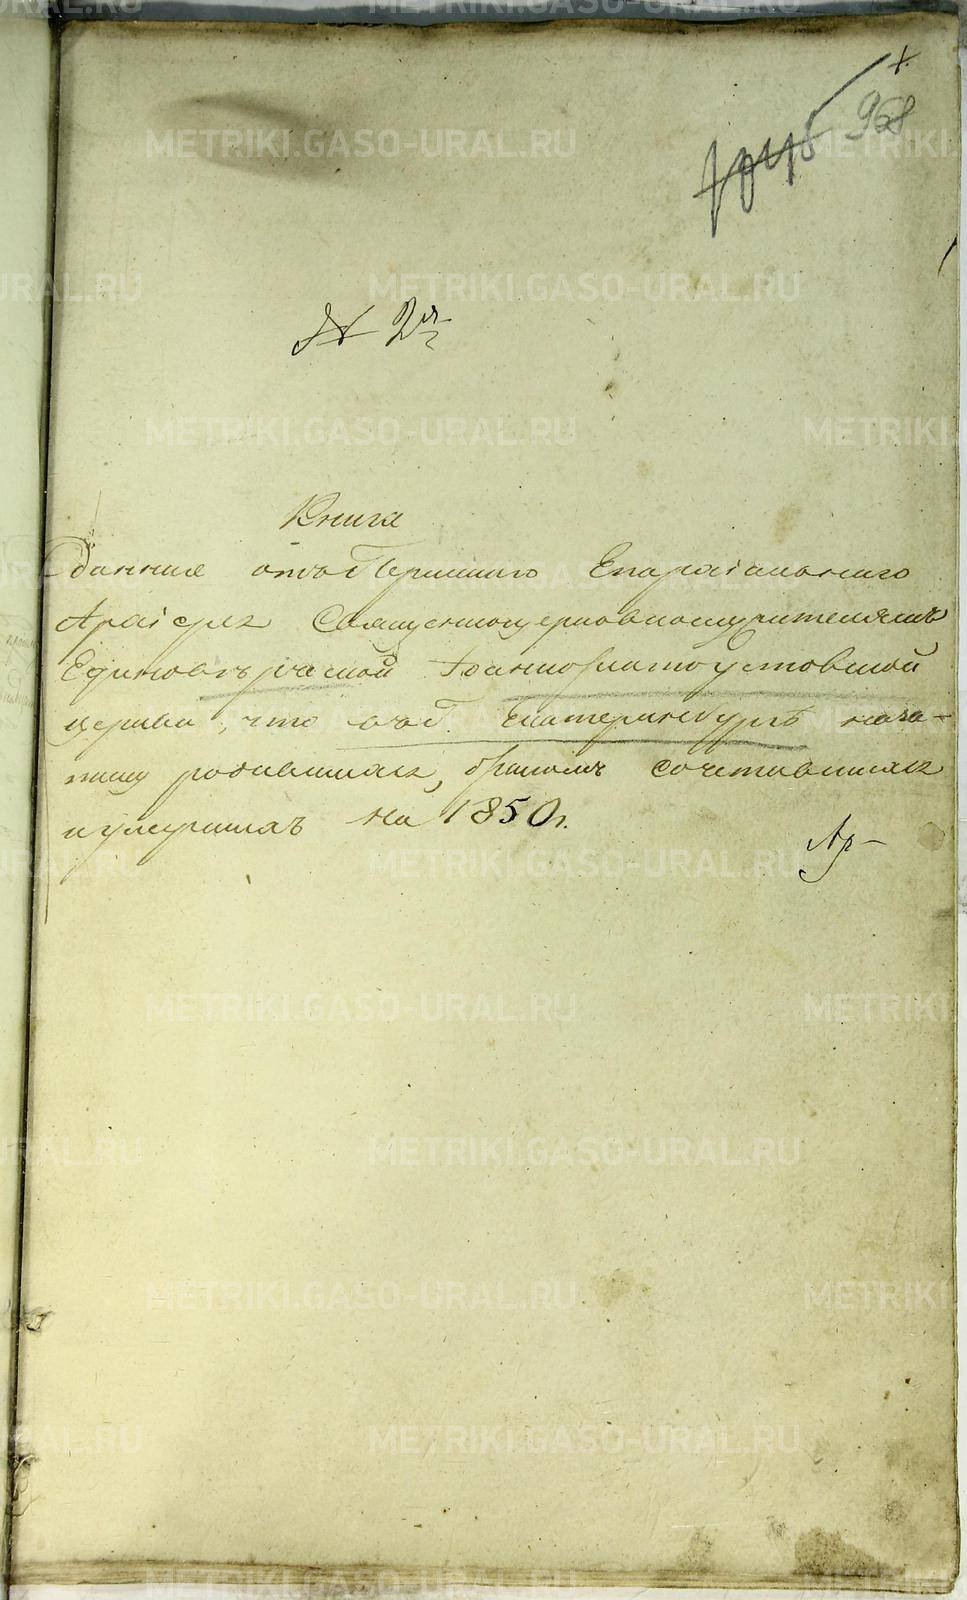 968
№ 2й
Книга
данная отъ Пермскаго Епархіальнаго
Архіерея Священноцерковнослужителямъ
Единовѣрческой Іоаннозлатоустовской
церкви, что въ г. Екатеринбургѣ на за-
писку родившихся, бракомъ сочетавшихся
и умершихъ на 1850 г.
Ар-
METRIKI.GASO-URAL.RU